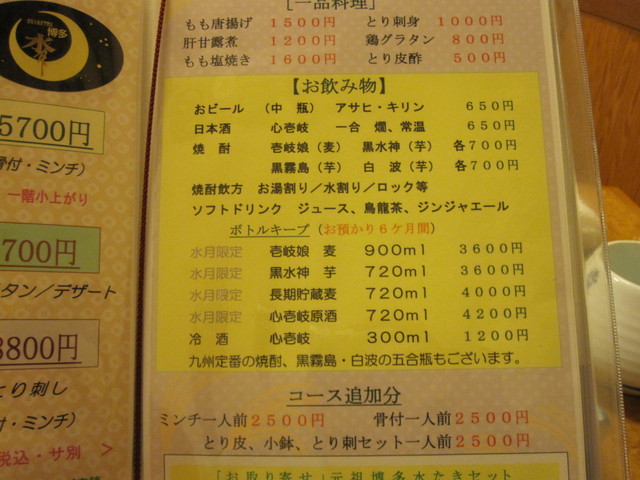 博多
5700円
骨付・ミンチ）
一階小上がり
700円
タン／デザート
3800円
とり刺し
付・ミンチ）
税込・サ別 >
［一品料理］
もも唐揚げ 1500円 とり刺身 1000円
肝甘露煮 1200円 鶏グラタン 800円
もも塩焼き 1600円 とり皮酢 500円
【お飲み物】
おビール （中 瓶） アサヒ・キリン 650円
日本酒 心壱岐 一合 燗、常温 650円
焼 酎 壱岐娘（麦） 黒水神（芋） 各700円
黒霧島（芋） 白 波（芋） 各700円
焼酎飲方 お湯割り／水割り／ロック等
ソフトドリンク ジュース、烏龍茶、ジンジャエール
ボトルキープ（お預かり6ケ月間）
水月限定 壱岐娘 麦 900ml 3600円
水月限定 黒水神 芋 720ml 3600円
水月限定 長期貯蔵麦 720ml 4000円
水月限定 心壱岐原酒 720ml 4200円
冷 酒 心壱岐 300ml 1200円
九州定番の焼酎、黒霧島・白波の五合瓶もございます。
コース追加分
ミンチ一人前2500円 骨付一人前2500円
とり皮、小鉢、とり刺セット一人前2500円
「お取り寄せ」元祖博多水たきセット